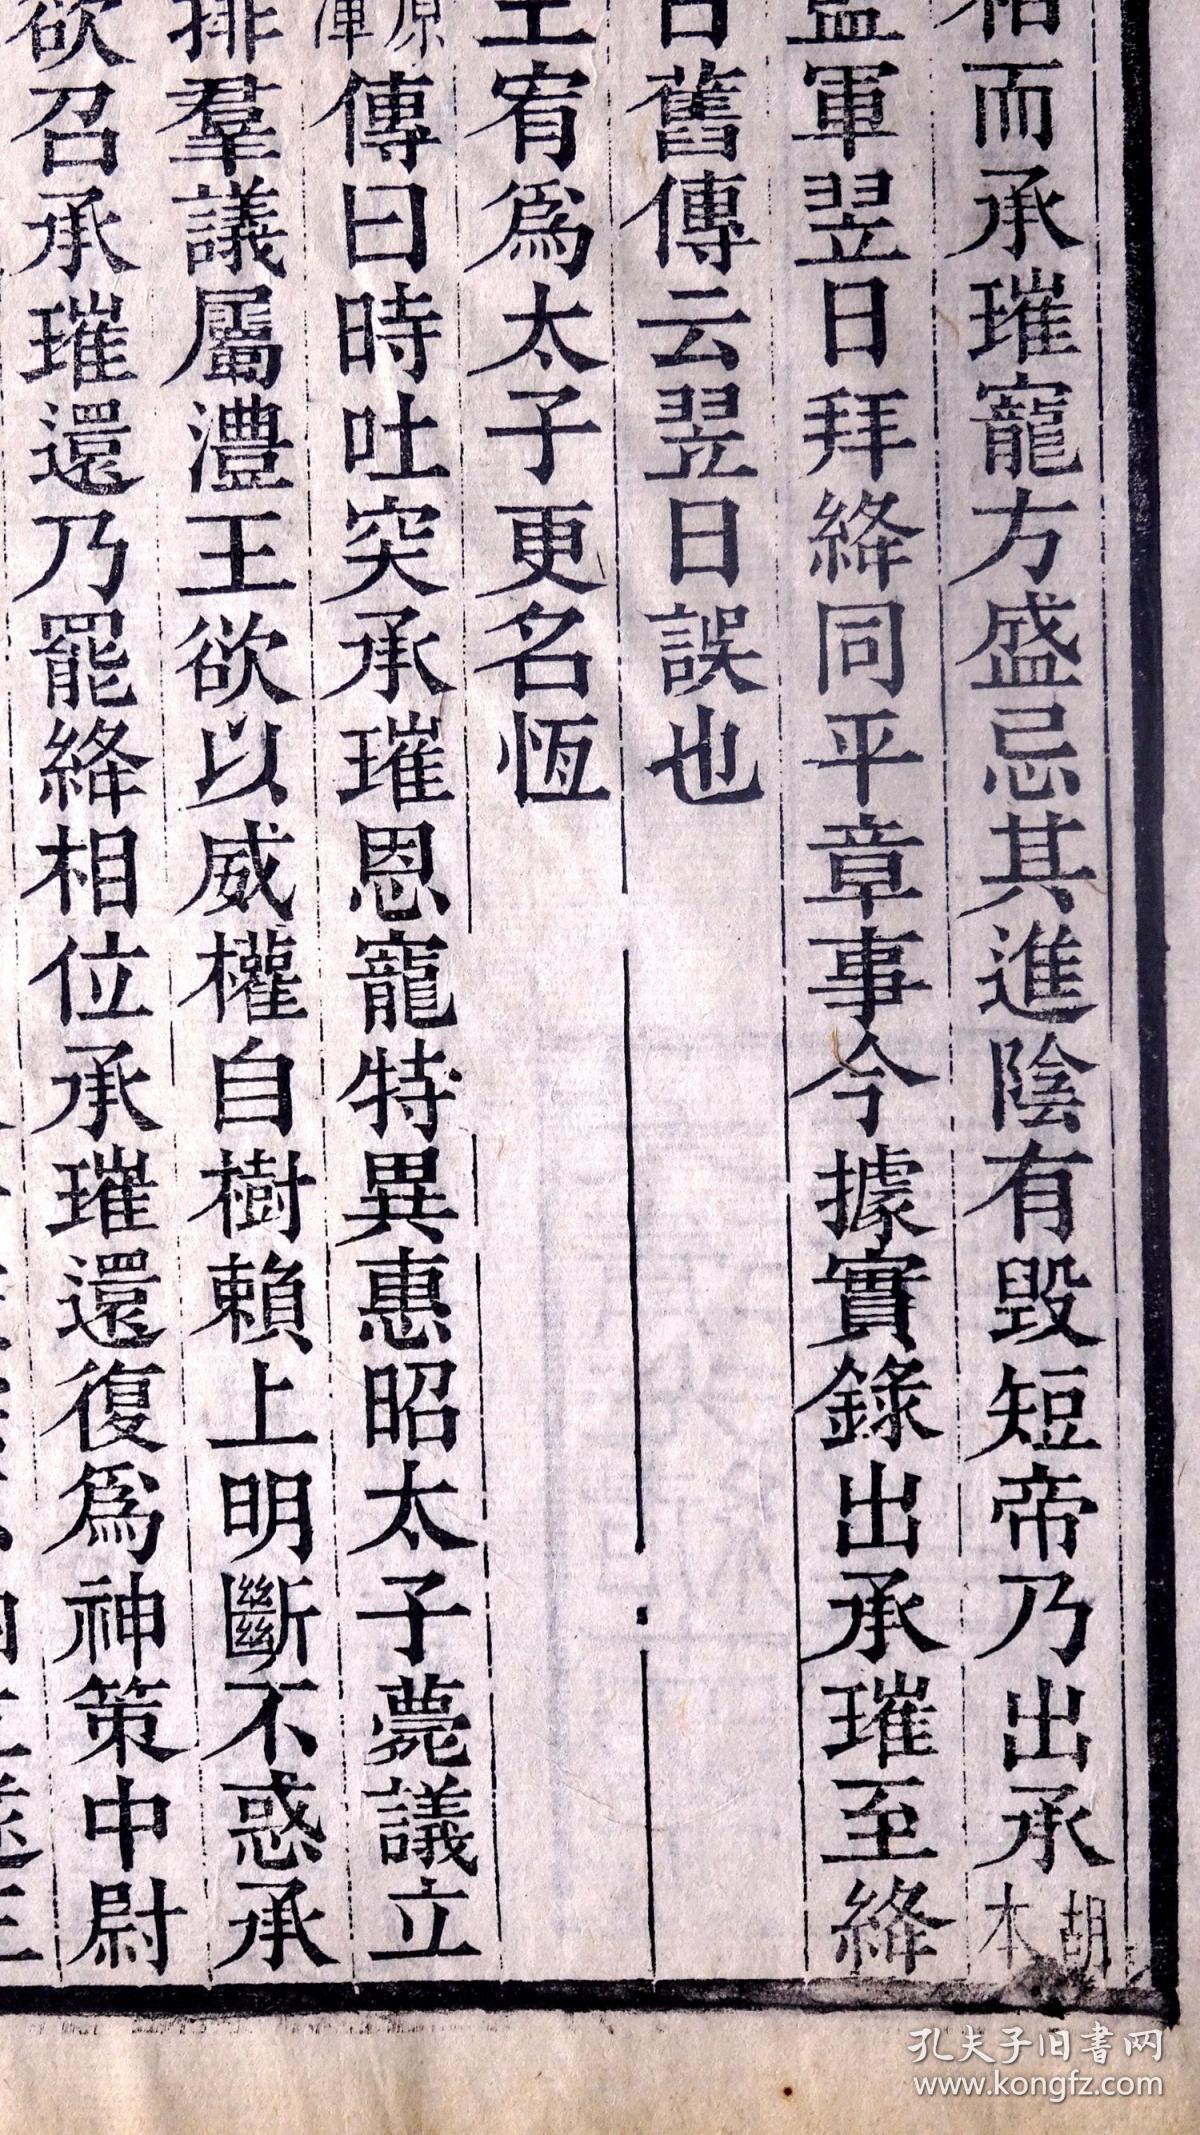 相而承璀寵方盛忌其進陰有毀短帝乃出承胡本
監軍翌日拜絳同平章事今據實錄出承璀至絳
舊傳云翌日誤也
王宥爲太子更名恆
原渾傳曰時吐突承璀恩寵特異惠昭太子薨議立
排羣議屬澧王欲以威權自樹賴上明斷不惑承
欲召承璀還乃罷絳相位承璀還復爲神策中尉
孔夫子旧書网
www.kongfz.com